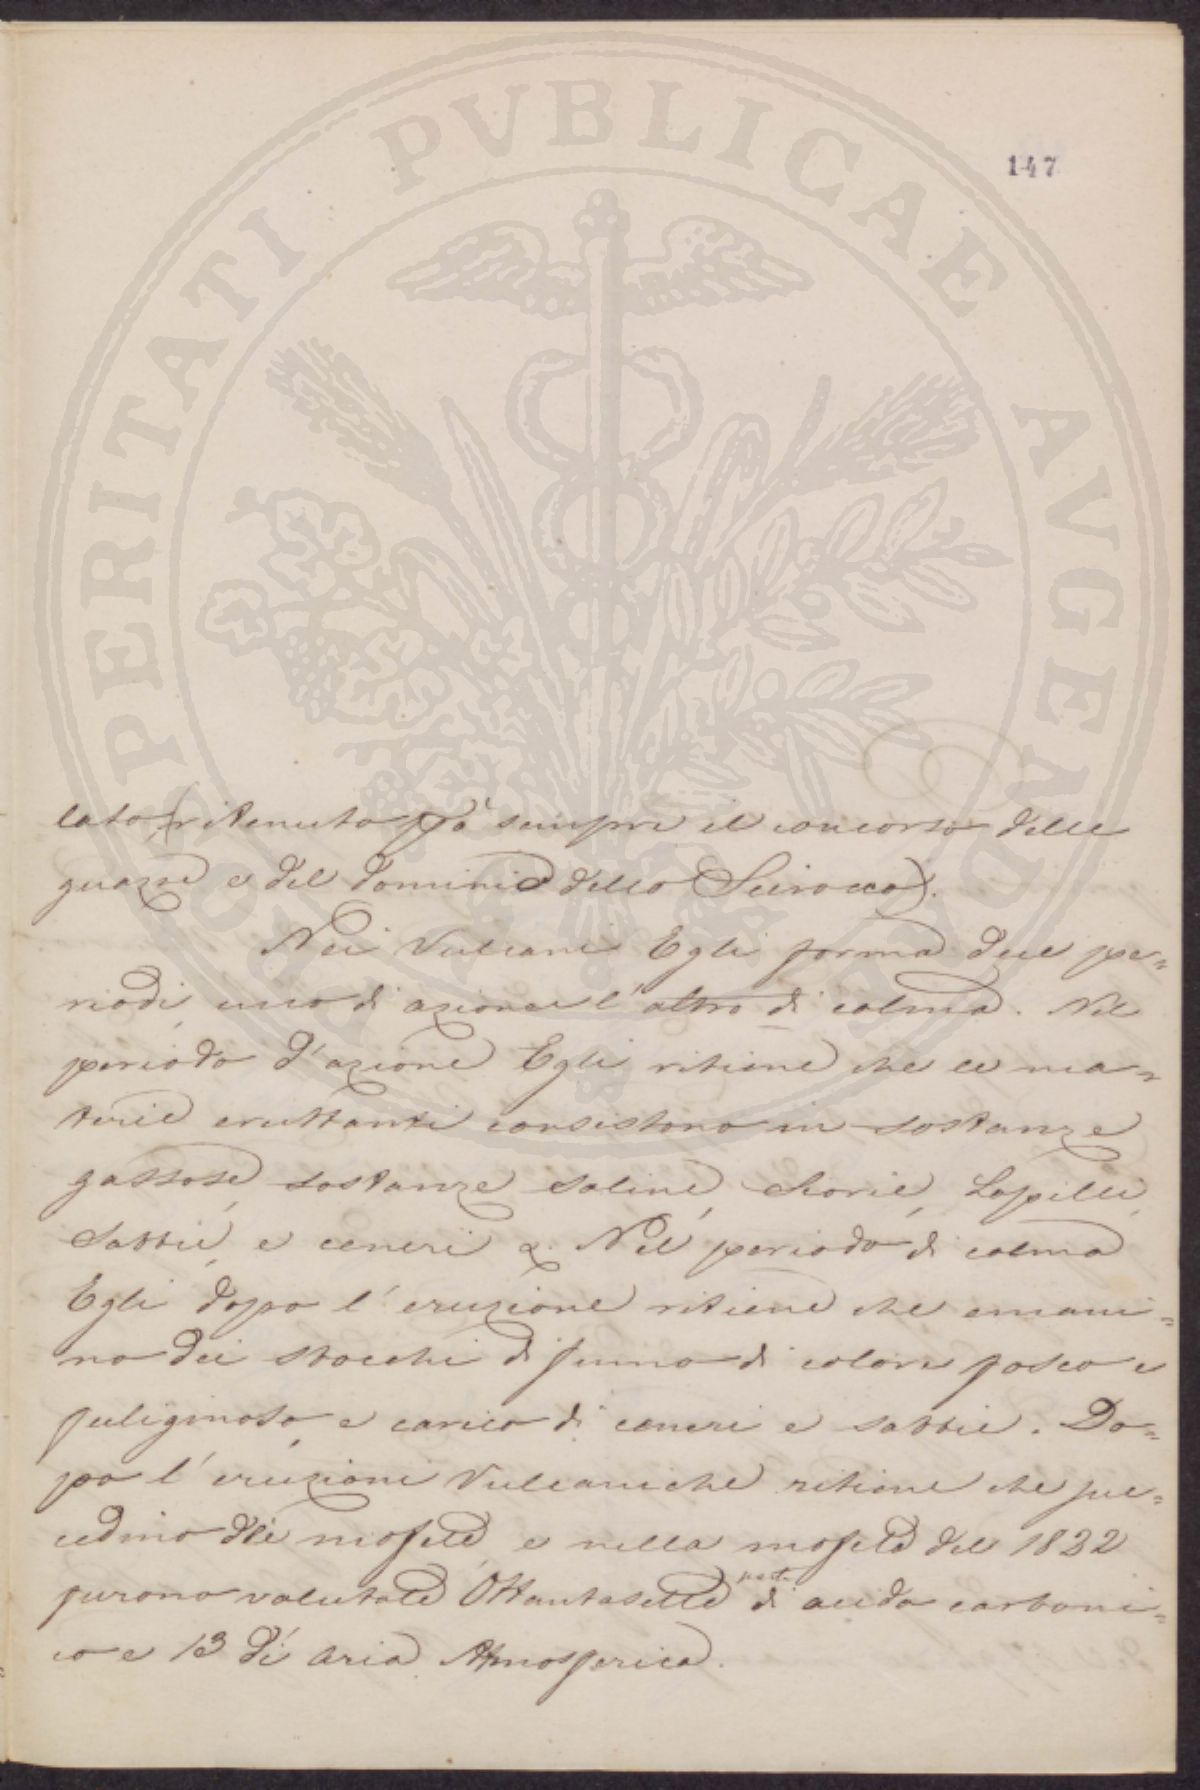 147
PROSPERITATI PVBLICAE AVGENDAE
lato (ritenuto però sempre il concorso delle
guazze e del dominio dello Scirocco).
Nei Vulcani Egli forma due pe=
riodi, uno di azione l'altro di calma. Nel
periodo d'azione Egli ritiene che le ma=
terie eruttanti consistono in sostanze
gassose, sostanze saline, scorie, Lapilli,
sabbie, e ceneri &. Nel periodo di calma
Egli dopo l'eruzione ritiene che emani=
no dei sbocchi di fumo di colore fosco e
fuliginoso, e carico di ceneri e sabbie. Do=
po l'eruzioni Vulcaniche ritiene che suc=
cedino delle mofete, e nella mofeta del 1832
furono valutate Ottantasette part. di acido carboni=
co e 13 di aria Atmosferica.